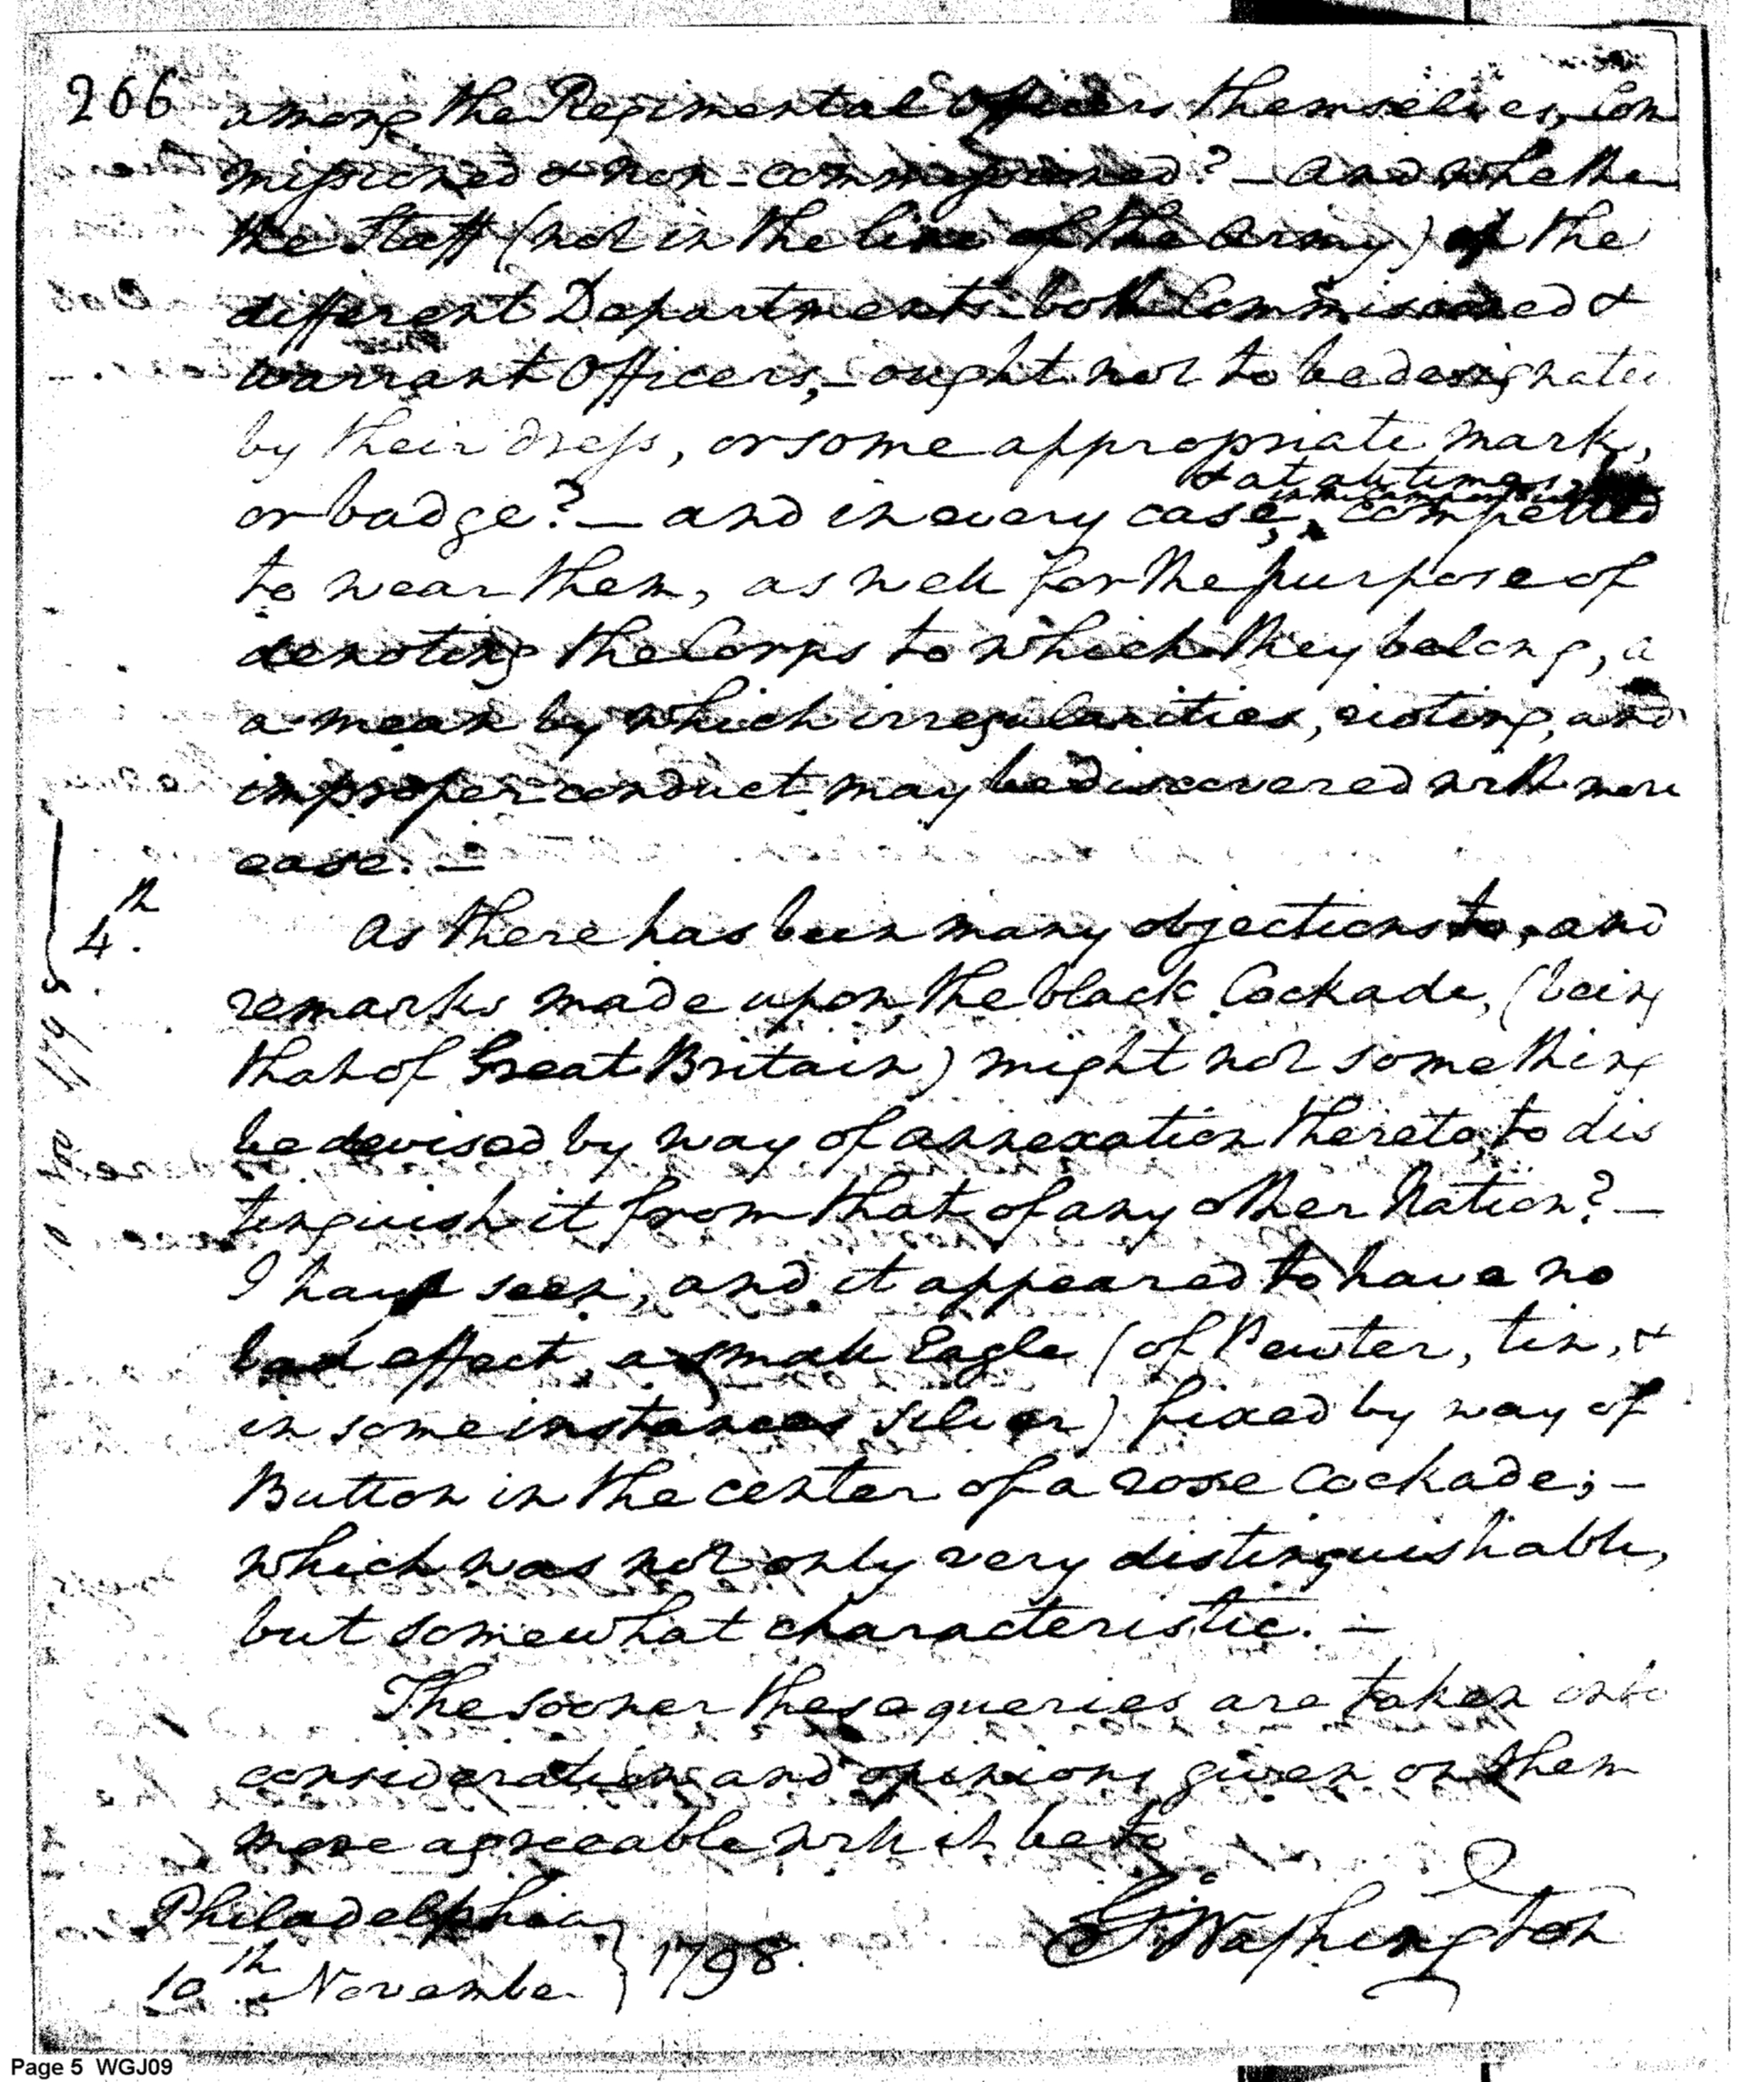 266
among the Regimental Officers themselves, Com
missioned & non-commissioned? — and whether
the Staff (not in the line of the Army) of the
different Departments both Commissioned &
warrant Officers, — ought not to be designated
by their dress, or some appropriate mark,
& at all times
or badge? — and in every case, compelled
to wear them, as well for the purpose of
denoting the Corps to which they belong, a
a mean by which irregularities, rioting, and
improper conduct may be discovered with more
ease. —
4th.
As there has been many objections to, and
remarks made upon, the black Cockade, (being
that of Great Britain) might not something
be devised by way of annexation thereto, to dis
tinguish it from that of any other Nation? —
I have seen, and it appeared to have no
bad effect, a small Eagle (of Pewter, tin, &
in some instances silver) fixed by way of
Button in the center of a rose Cockade; —
which was not only very distinguishable,
but somewhat characteristic. —
The sooner these queries are taken into
consideration and opinions given on them
more agreeable will it be to
Philadelphia
10th November } 1798.
G: Washington
10 1798
Page 5 WGJ09